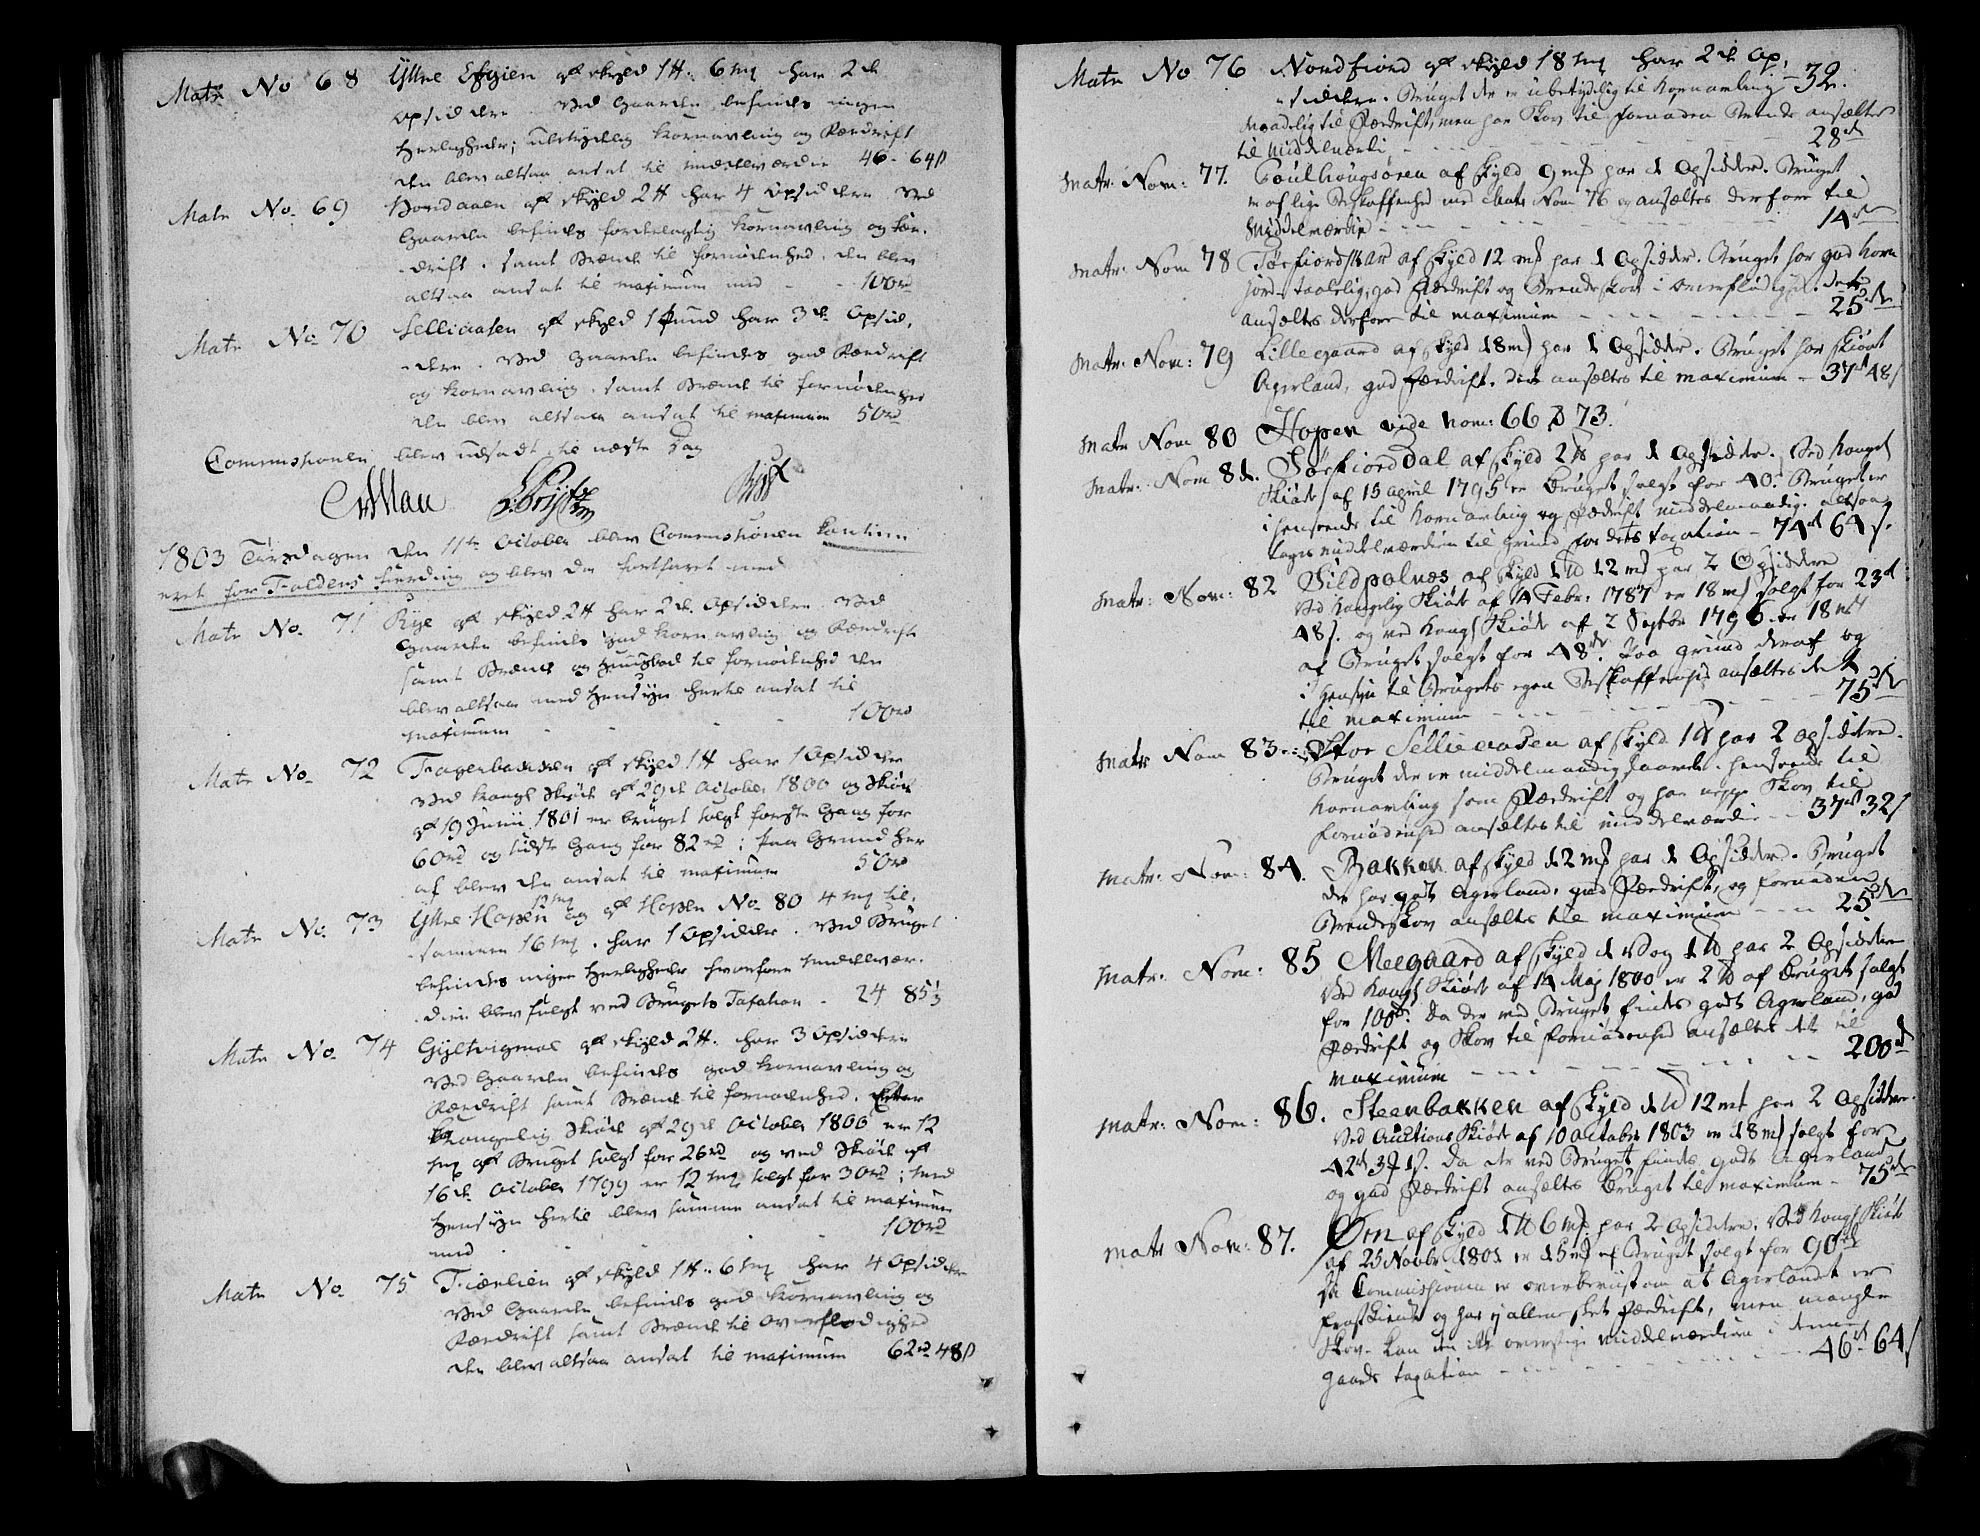 Matr No 68 Yttre Efgien af skyld 1 #. 6 mk har 2de
opsiddere. Ved Gaarden befindes ingen
Herligheder; ubetydelig Kornavling og Fædrift
den blev altsaa ansat til middelværdie 46 - 64 ß
Matr No. 69 af skyld 2 # har 4 Opsiddere. Ved
Gaarden befindes fordelagtig Kornavling og Fæ-
drift. samt Brænde til fornødenhed. den blev
altsaa ansat til maximum med - - 100 rd
Matr No. 70 Selliaasen af skyld 1 Pund har 3de Opsid-
dere. Ved Gaarden befindes god Fædrift
og Kornavling. samt Brænde til fornødenhed
den blev altsaa ansat til maximum 50 rd
Commissionen blev udsadt til næste Dag
1803 Tirsdagen den 11te October blev Commissionen Continu
eret for Foldens Fierding og blev da fortfaret med
Matr No. 71 Rye af skyld 2 # har 2de Opsiddere. Ved
Gaarden befindes god Kornavling og Fædrift
samt Brænde og til fornødenhed den
blev altsaa med Hensyn hertil ansat til
maximum - - - 100 rd
Matr No. 72 Fagerbakken af skyld 1 # har 1 Opsidder
Ved Kongl Skiøde af 29de October 1800 og Skiøde
af 19 Junii 1801 er bruget solgt første Gang for
60 rd og sidste Gang for 82 rd; paa Grund her
af blev den ansat til maximum 50 rd
Matr No. 73 Yttre Hopen 12 mk og af Hopen No. 80 4 mk til-
sammen 16 mk. har 1 Opsidder. Ved Bruget
befindes ingen Herligheder hvorfore middelvær-
dien blev fulgt ved Brugets Taxation - 24 85⅓
Matr No. 74 af skyld 2 #. har 3 Opsiddere
Ved Gaarden befindes god Kornavling og
Fædrift samt Brænde til fornødenhed. Efter
Kongelig Skiøde af 29de October 1800 er 12
mk af Bruget solgt for 26 rd og ved Skiøde af
16de October 1799 er 12 mk solgt for 30 rd; med
Hensyn hertil blev samme ansat til maximum
med - - - 100 rd
Matr No. 75 Fiærlien af skyld 1 #. 6 mk har 4 Opsiddere
Ved Gaarden befindes god Kornavling og
Fædrift samt Brænde til overflødighed
den blev altsaa ansat til maximum 62 rd 48 ß
Matr No 76 Nordfiord af skyld 18 mk har 2de Op-
siddere. Bruget der er ubetydelig til Kornavling - 32.
maadelig til Fædrift, men har Skov til fornøden Brænde ansættes
til Middelværdi - - - 28 rd
Matr: Nom: 77. af skyld 9 m$ har 1 Opsidder. Bruget
er af lige Beskaffenhed med Matr Nom 76 og ansættes derfore til
Middelværdie - - - 14 rd
Matr: Nom 78 af skyld 12 m$ har 1 Opsidder. Bruget har god Korn
jord taalelig, god Fædrift og Brændeskov i overflødighed. dette
ansættes derfore til maximum - - - 25 rd
Matr: Nom: 79 Lillegaard af skyld 18 m$ har 1 Opsidder. Bruget har skiønt
Agerland, god Fædrift. dette ansættes til maximum - 37 rd 48 ß
Matr Nom 80 Hopen vide Nom: 66 & 73.
Matr: Nom 81. Sørfiorddal af skyld 2 # har 1 Opsidder. Ved Kongel
Skiøde af 15 April 1795 er Bruget solgt for 40. Bruget er
i henseende til Kornavling og Fædrift middelmaadig. altsaa
tages middelværdien til grund for dets taxation - 74 rd 64 ß.
Matr: Nom: 82 Sildpolnæs af skyld 1 # 12 m$ har 2 Opsiddere
Ved Kongelig Skiøde af 14 Febr: 1787 er 18 m$ solgt for 23 rd
48 ß. og ved Kongl Skiøde af 2 Septbr 1796 er 18 m$
af Bruget solgt for 48 rd. Paa grund deraf og
i Hensyn til Brugets egen Beskaffenhed ansættes dette
til maximum - - - 75 rd
Matr Nom 83 Stor Selliaasen af skyld 1 # har 2 opsiddere.
Bruget der er middelmaadig saavel i henseende til
Kornavling som Fædrift og har neppe Skov til
fornødenhed ansættes til middelværdi - - 37 rd 32 ß
Matr: Nom: 84. Bakken af skyld 12 m$ har 1 Opsidder. Bruget
der har godt Agerland, god Fædrift, og fornøden
Brændeskov ansættes til maximum - - - 25 rd
Matr: Nom: 85 Meegaard af skyld 1 Vog 1 # har 2 Opsiddere
Ved Kongl Skiøde af 14 Maj 1800 er 2 # af Bruget solgt
for 100 rd. Da der ved Bruget findes godt Agerland, god
Fædrift og Skov til fornødenhed ansættes det til
maximum - - - 200 rd
Matr: Nom: 86. Steenbakken af skyld 1 # 12 m$ har 2 Opsiddere.
Ved Auctions Skiøde af 10 October 1803 er 18 m$ solgt for
42 rd 3 # 1 ß. Da der ved Bruget findes godt Agerland
og god Fædrift ansættes Bruget til maximum - 75 rd
Matr Nom: 87. Øen af skyld 1 # 6 m$ har 2 Opsiddere. Ved Kongl Skiøde
af 25 Novbr 1801 er 15 m$ af Bruget solgt for 90 rd
Da Commissionen er overbeviist om at Agerlandet er
og har Fædrift, men mangler
Skov. kan den ikke overstige middelværdien i denne
Gaards taxation - - - 46 rd 64 ß